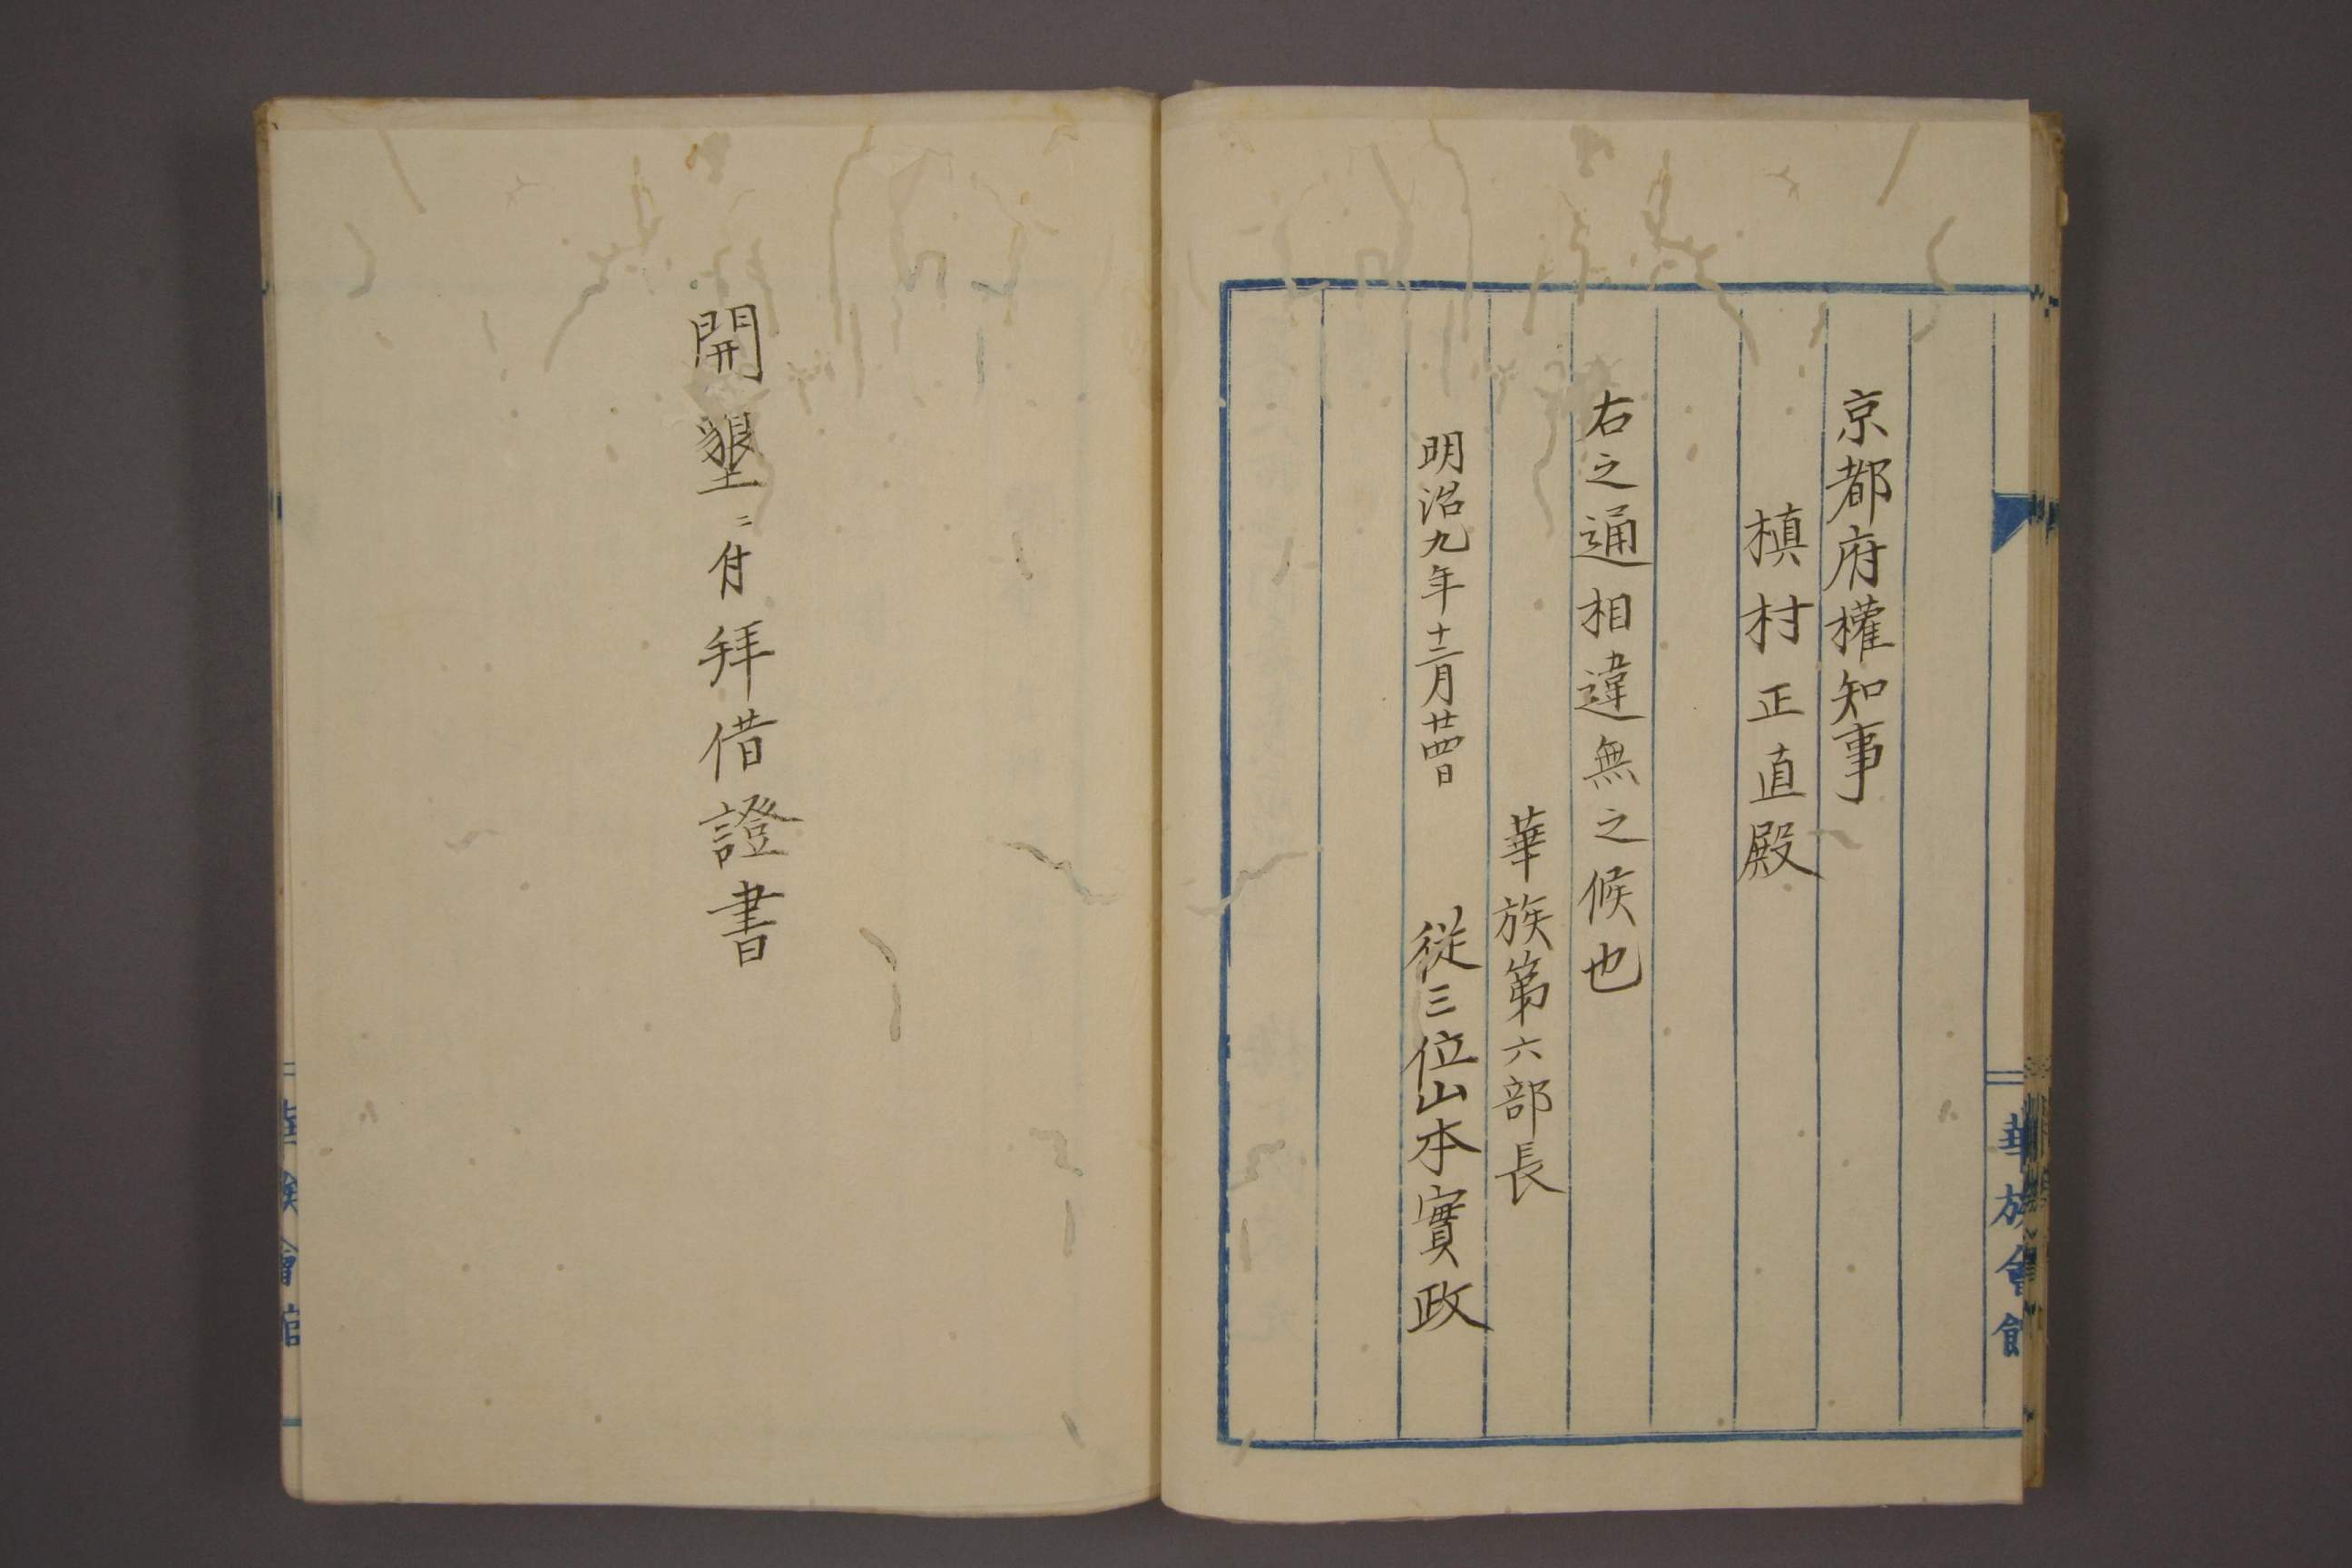 京都府權知事
槙村正直殿
右之通相違無之候也
華族第六部長
明治九年十二月廿四日
從三位山本實政
華族會館
開墾ニ付拜借證書
華族會館